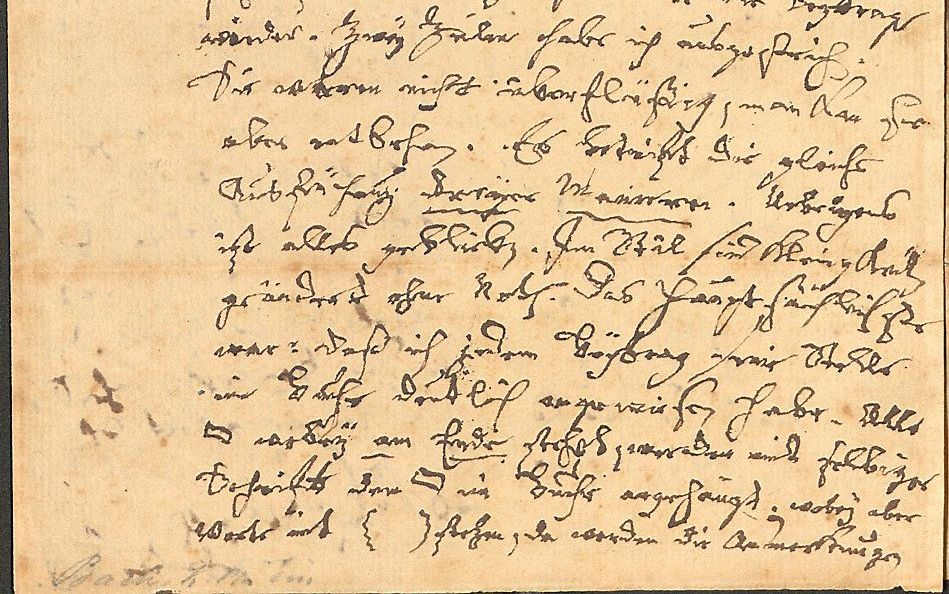 Beytrag
würden. Zwey Zeilen habe ich ausgestrichen.
Sie waren nicht überflüssig, man kan sie
aber entbehren. Es betrifft die gleiche
Ausführung dreyer Manieren. Uebrigens
ist alles geblieben. Im Styl sind Kleinigkeiten
geändert ohne Noth. Das hauptsächlichste
war: daß ich jedem Beytrag seine Stelle
im Buche deutlich angewiesen habe. Alle
wobey am Ende stehet, werden mit selbiger
Schrift dem im Buche angehängt, wobey aber
Worte mit { } stehen, da werden die Anmerkungen